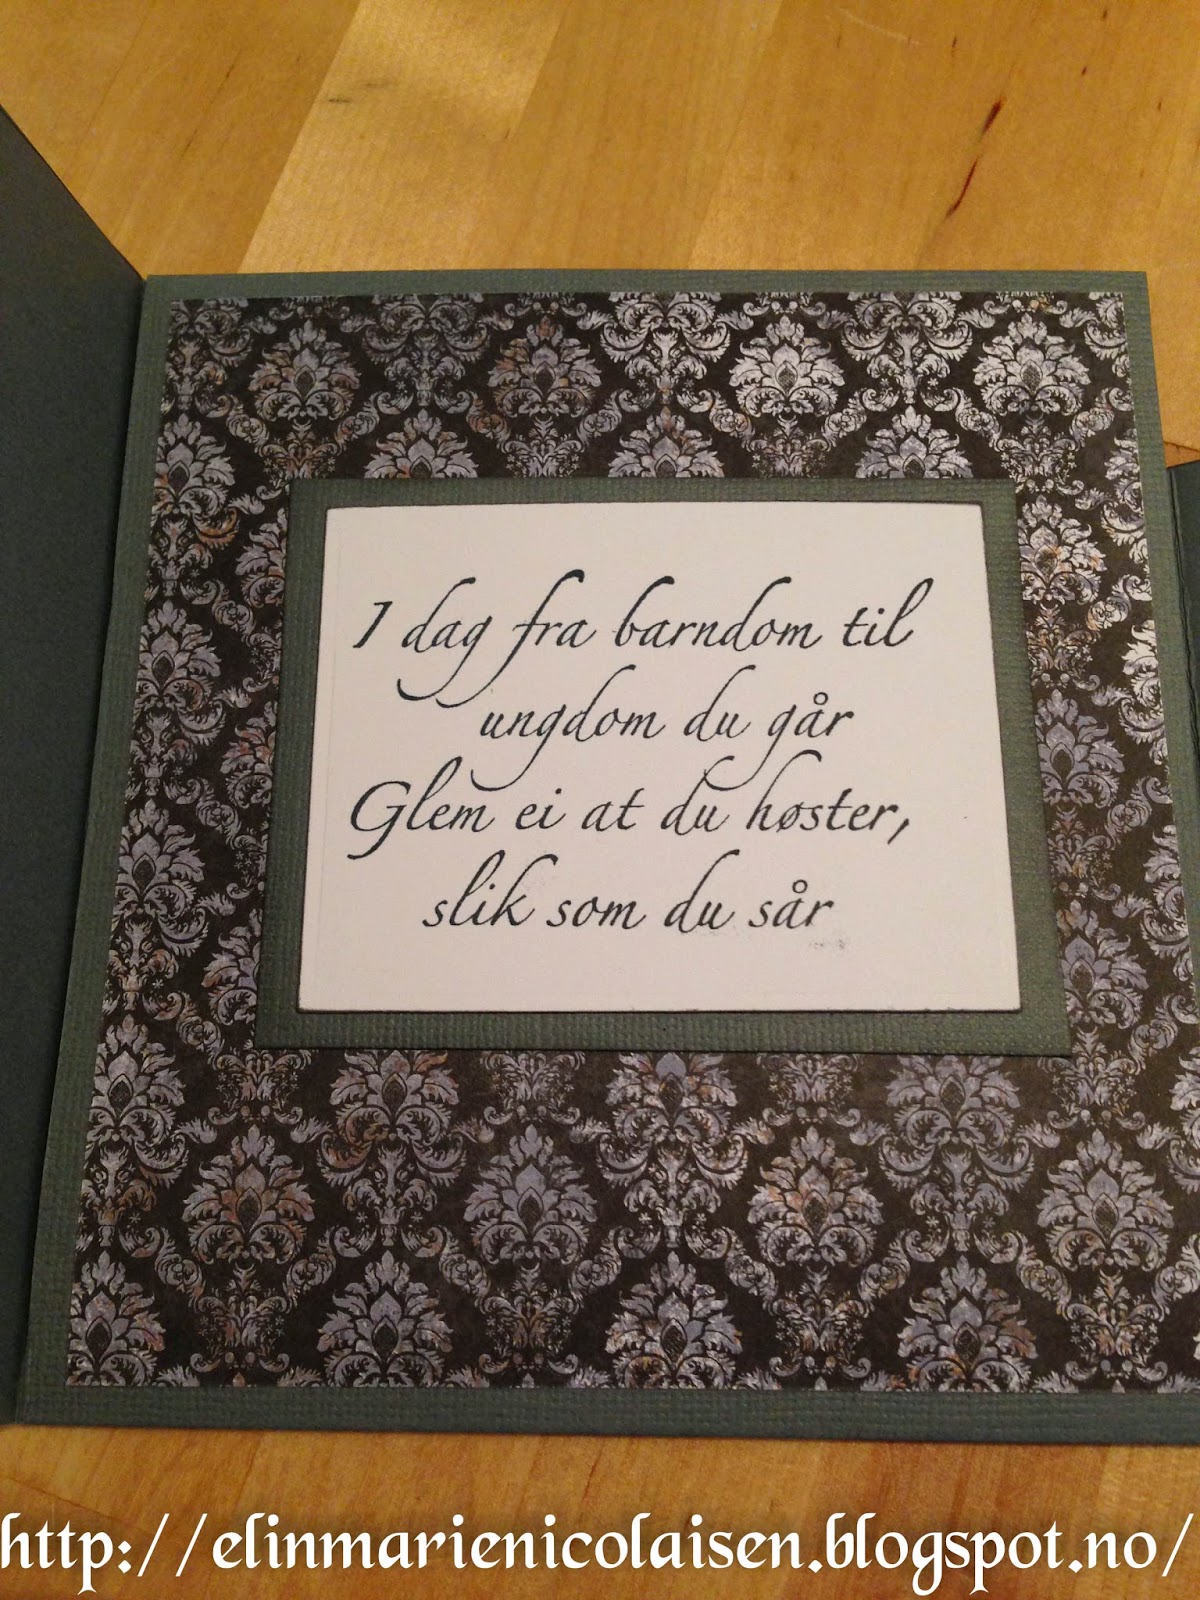 I dag fra barndom til
ungdom du går
Glem ei at du høster,
slik som du sår
http://elinmarienicolaisen.blogspot.no/